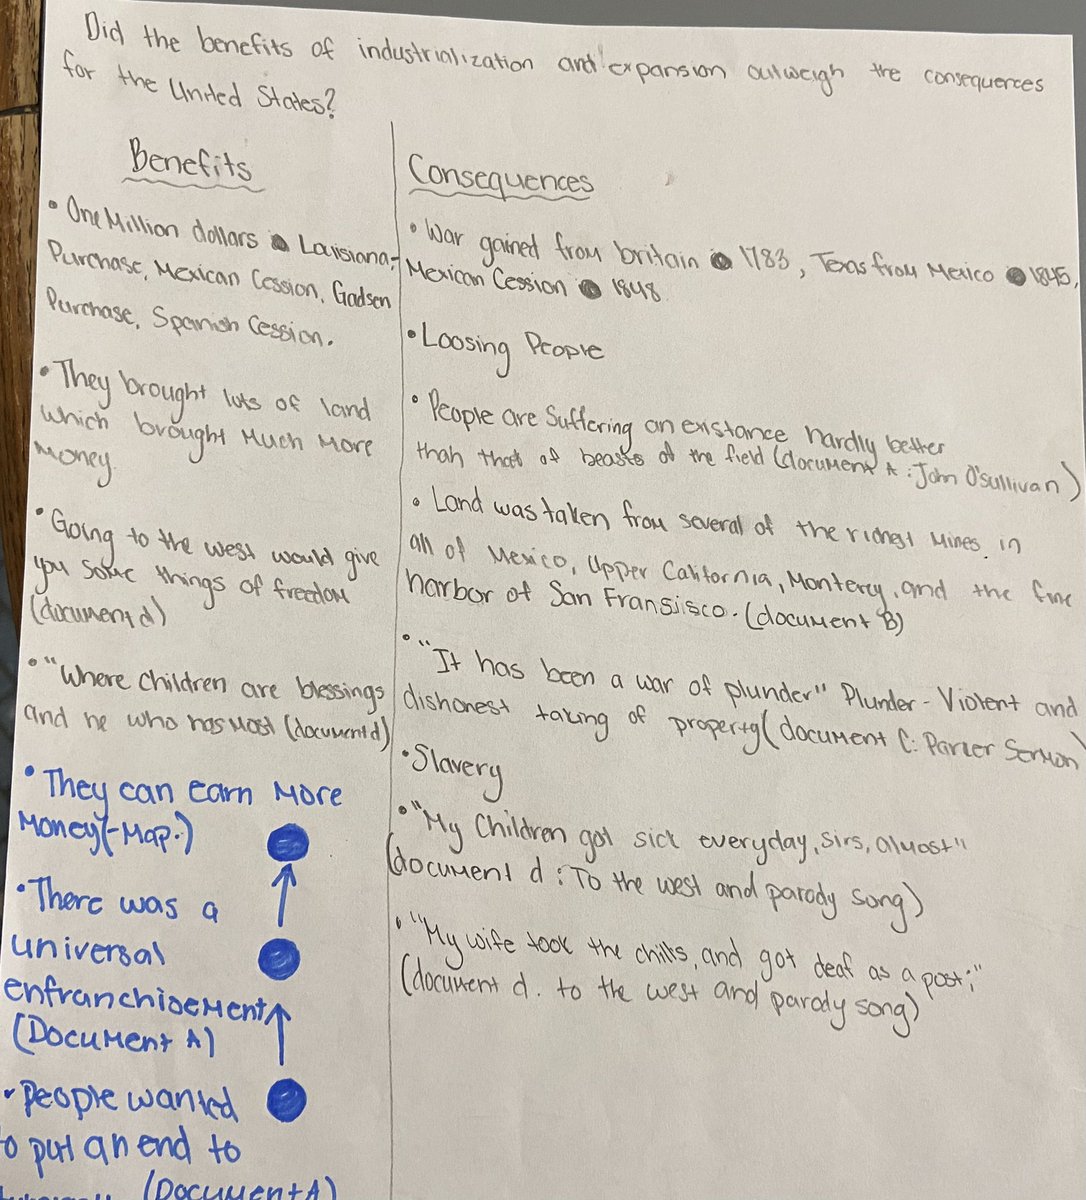 Did the benefits of industrialization and expansion outweigh the consequences
for the United States?
Benefits
• One Million dollars Louisiana
Purchase, Mexican Cession, Gadsen
Purchase, Spanish Cession.
• They brought lots of land
which brought much more
money.
• Going to the west would give
you some things of freedom
(document d)
• "Where children are blessings
and he who has most (document d)
• They can earn more
money(-Map.)
• There was a
universal
enfranchisement
(Document A)
• People wanted
to put an end to
(Document A)
Consequences
• War gained from britain 1783, Texas from Mexico 1845,
Mexican Cession 1848.
• Loosing People
• People are Suffering an existance hardly better
than that of beasts of the field (document A: John O'sullivan)
• Land was taken from several of the richest mines in
all of Mexico, Upper California, Monterey, and the fine
harbor of San Fransisco. (document B)
• "It has been a war of plunder" Plunder - Violent and
dishonest taking of property (document C: Parker Sermon)
• Slavery
• "My Children got sick everyday, sirs, almost"
(document d: To the west and parody song)
• "My wife took the chills, and got deaf as a post;"
(document d. to the west and parody song)